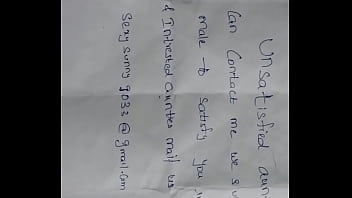 Unsatisfied aun
Can Contact me we s
male to satisfy you
& Intrested aunties mail us
Sexy sunny 9033 @ gmail.com